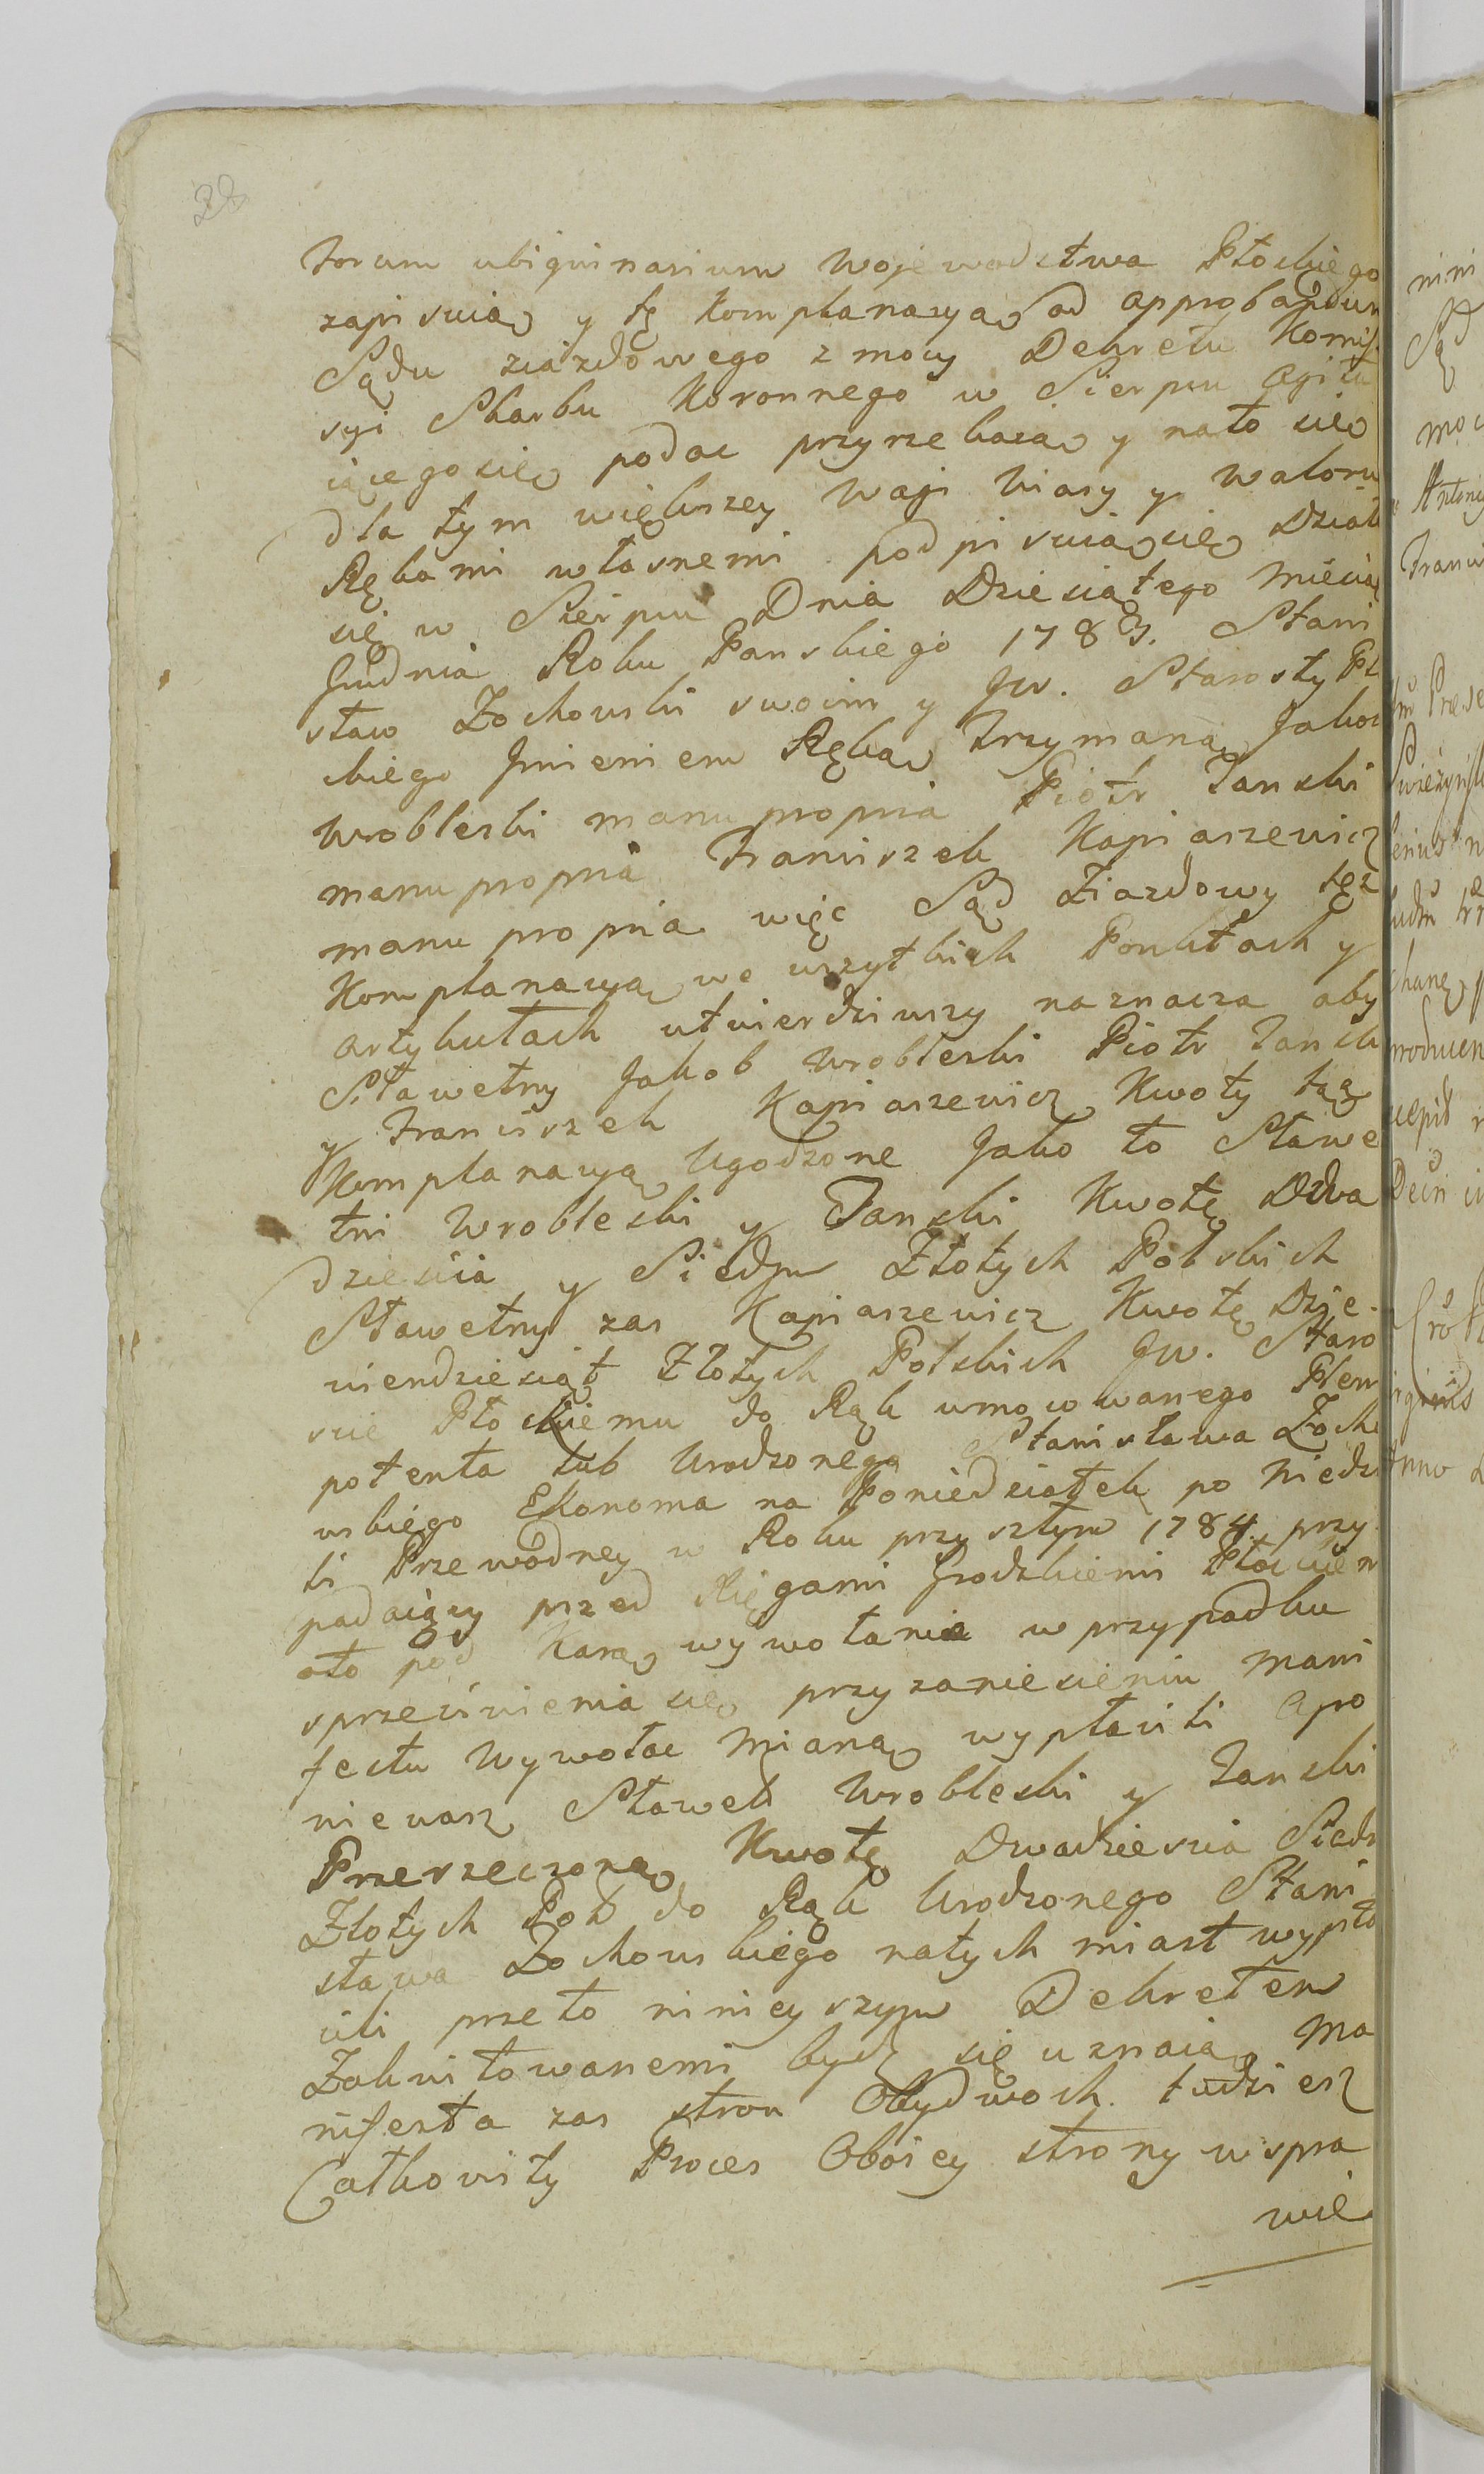 28
Forum ubiquinarium Wojewodstwa Płockiego
zapisuią y tę komplanacyą ad approbandum
Sądu ziazdowego z mocy Dekretu Komis
syi Skarbu Koronnego w Sierpcu agitu
iącego się podac przyrzekaią y na to się
dla tym większey wagi wiary y waloru
Rękami własnemi podpisuią się Działo
się w Sierpcu Dnia Dziesiątego Miesiąc
Grudnia Roku Panskiego 1783. Stani
sław Zochowski swoim y Jw. Starosty Pł
ckiego Jmieniem Ręką Trzymaną Jakob
Wrobleski manu propria Piotr Janski
manu propria Franciszek Kapiaszewicz
manu propria więc Sąd Ziazdowy tęż
Komplanacyą we wszytkich Ponktach y
artykułach utwierdziwszy naznacza aby
Sławetny Jakob Wrobleski Piotr Jansk
y Franciszek Kapiaszewicz Kwoty tąż
Komplanacyą Ugodzone Jako to Sławe
tni Wrobleski y Janski Kwotę Dwa
dziescia y Siedm Złotych Polskich
Sławetny zas Kapiaszewicz Kwotę Dzie-
wiendziesiąt Złotych Polskich Jw. Staro
scie Płockiemu do Rąk umocowanego Plen
potenta lub Urodzonego Stanisława Zocho
wskiego Ekonoma na Poniedziałek po Niedzie
li Przewodney w Roku przyszłym 1784 przy
padaiący przed Xięgami Grodzkiemi Płockiem
a to pod Karą wywołania w przypadku
sprzeciwienia się przy zaniesieniu Mani
festu Wywołac Mianą wypłacili a po
niewasz Sławetd Wrobleski y Janski
Przerzeczoną Kwotę Dwadziescia Siedm
Złotych Pol do Rąk Urodzonego Stani
sława Zochowskiego natychmiast wypła
cili przeto ninieyszym Dekretem
Zakwitowanemi bydz się uznaią Ma
nifesta zas stron Obydwoch tudziesz
Całkowity Proces Oboiey strony w spra
wie